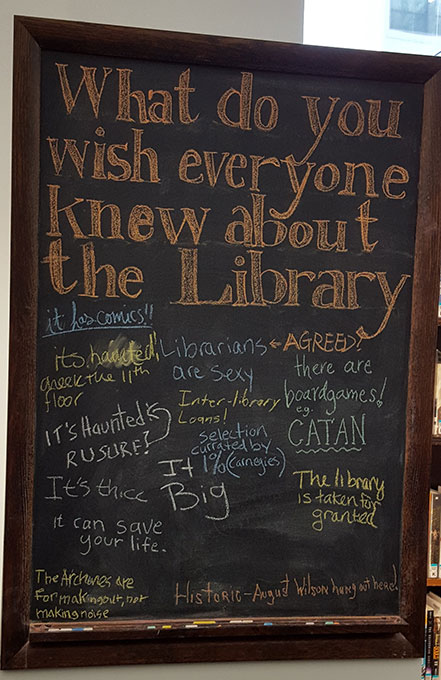 What do you
wish everyone
knew about
the Library
it has comics!!
its haunted!
check the 11th
floor
Librarians
are sexy
←AGREED!
there are
boardgames!
eg.
CATAN
Inter-library
Loans!
IT'S Haunted
RUSURE?
selection
currated by
1% (carnegies)
It
Big
It's thicc
it can save
your life.
The library
is taken for
granted
The Archives are
For making out, not
making noise
Historic-August Wilson hung out here!